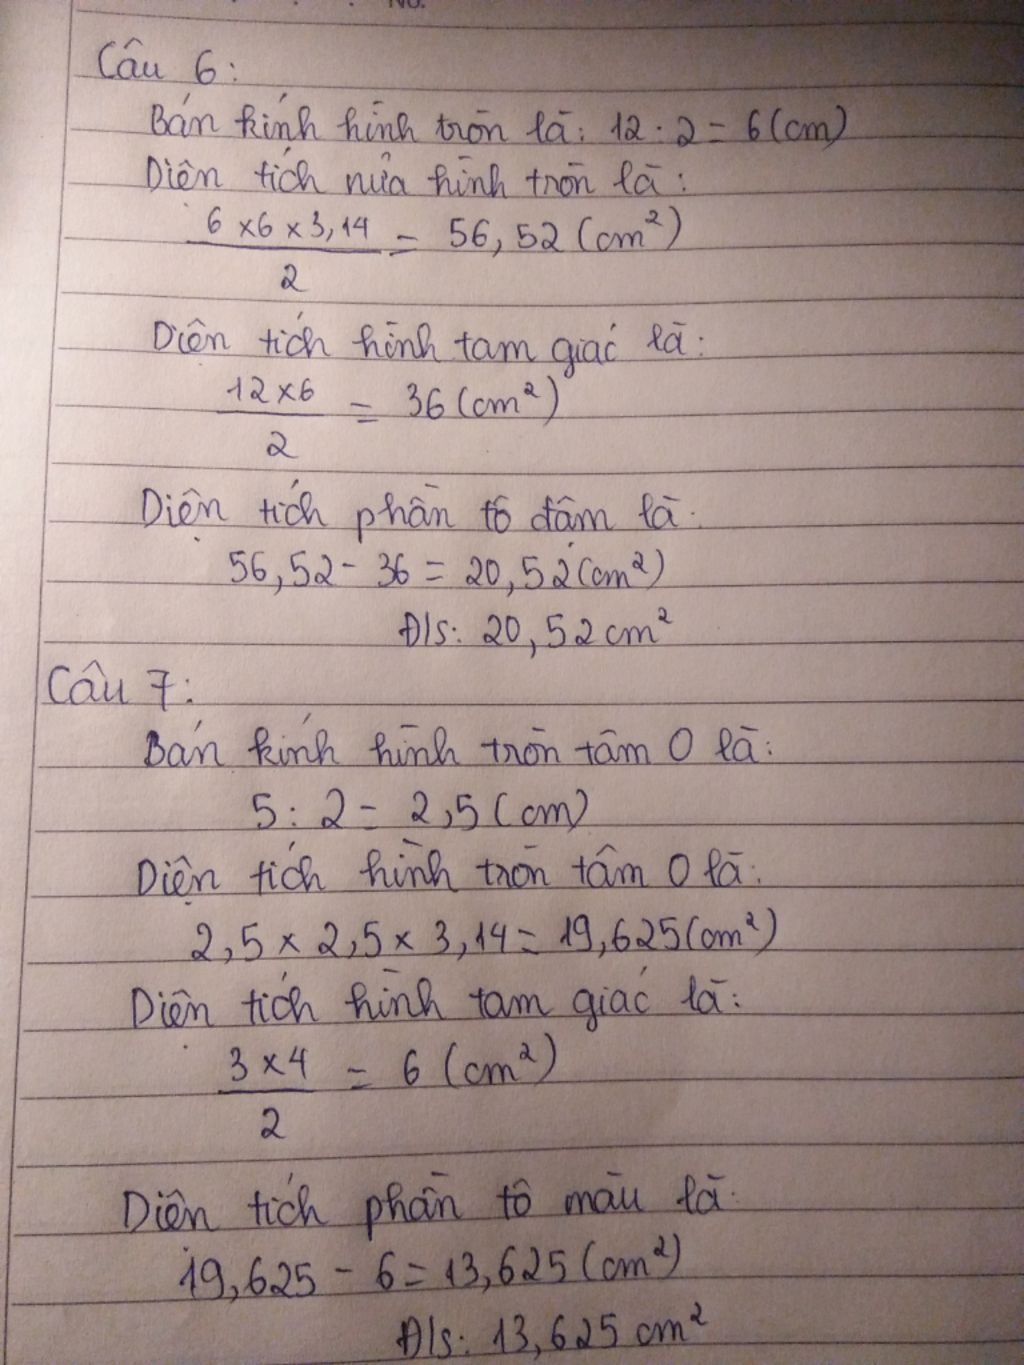 No.
Câu 6:
Bán kính hình tròn là: 12 : 2 = 6 (cm)
Diện tích nửa hình tròn là:
6 x 6 x 3,14 / 2 = 56,52 (cm²)
Diện tích hình tam giác là:
12 x 6 / 2 = 36 (cm²)
Diện tích phần tô đậm là:
56,52 - 36 = 20,52 (cm²)
Đ/s: 20,52 cm²
Câu 7:
Bán kính hình tròn tâm O là:
5 : 2 = 2,5 (cm)
Diện tích hình tròn tâm O là:
2,5 x 2,5 x 3,14 = 19,625 (cm²)
Diện tích hình tam giác là:
3 x 4 / 2 = 6 (cm²)
Diện tích phần tô màu là:
19,625 - 6 = 13,625 (cm²)
Đ/s: 13,625 cm²